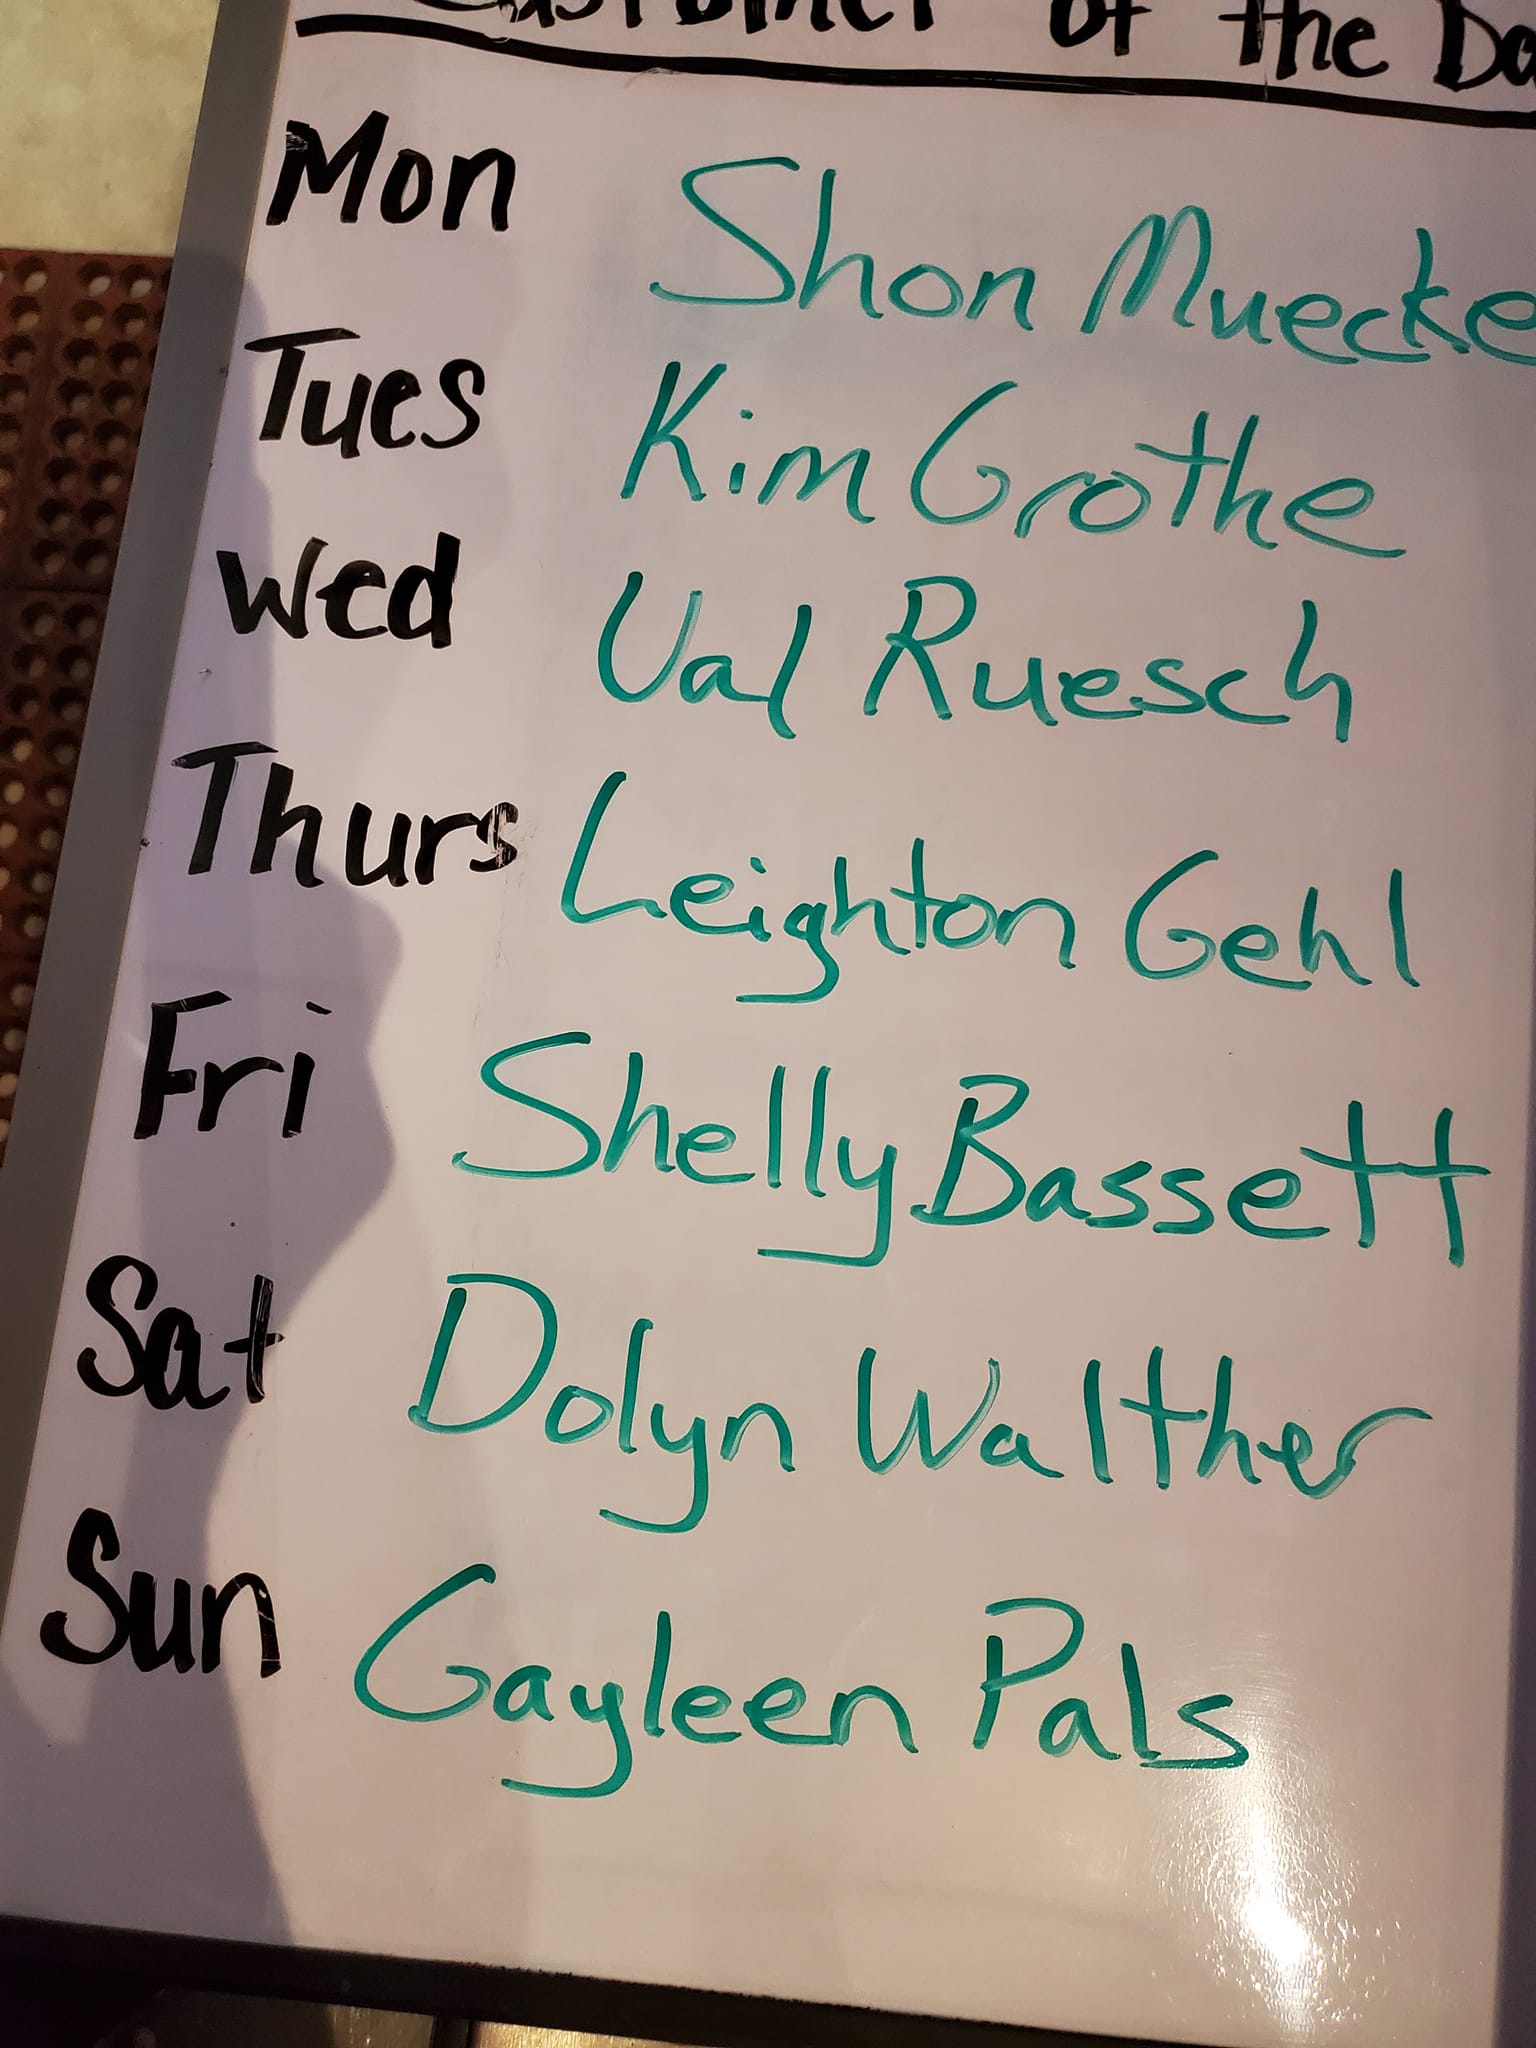 Customer of the Da
Mon Shon Muecke
Tues Kim Grothe
Wed Val Ruesch
Thurs Leighton Gehl
Fri Shelly Bassett
Sat Dolyn Walther
Sun Gayleen Pals